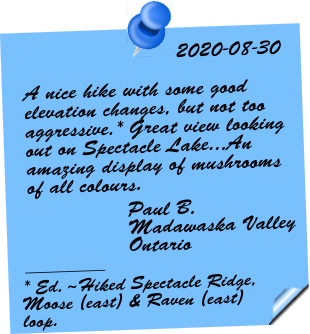 2020-08-30
A nice hike with some good
elevation changes, but not too
aggressive.* Great view looking
out on Spectacle Lake...An
amazing display of mushrooms
of all colours.
Paul B.
Madawaska Valley
Ontario
* Ed. ~Hiked Spectacle Ridge,
Moose (east) & Raven (east)
loop.